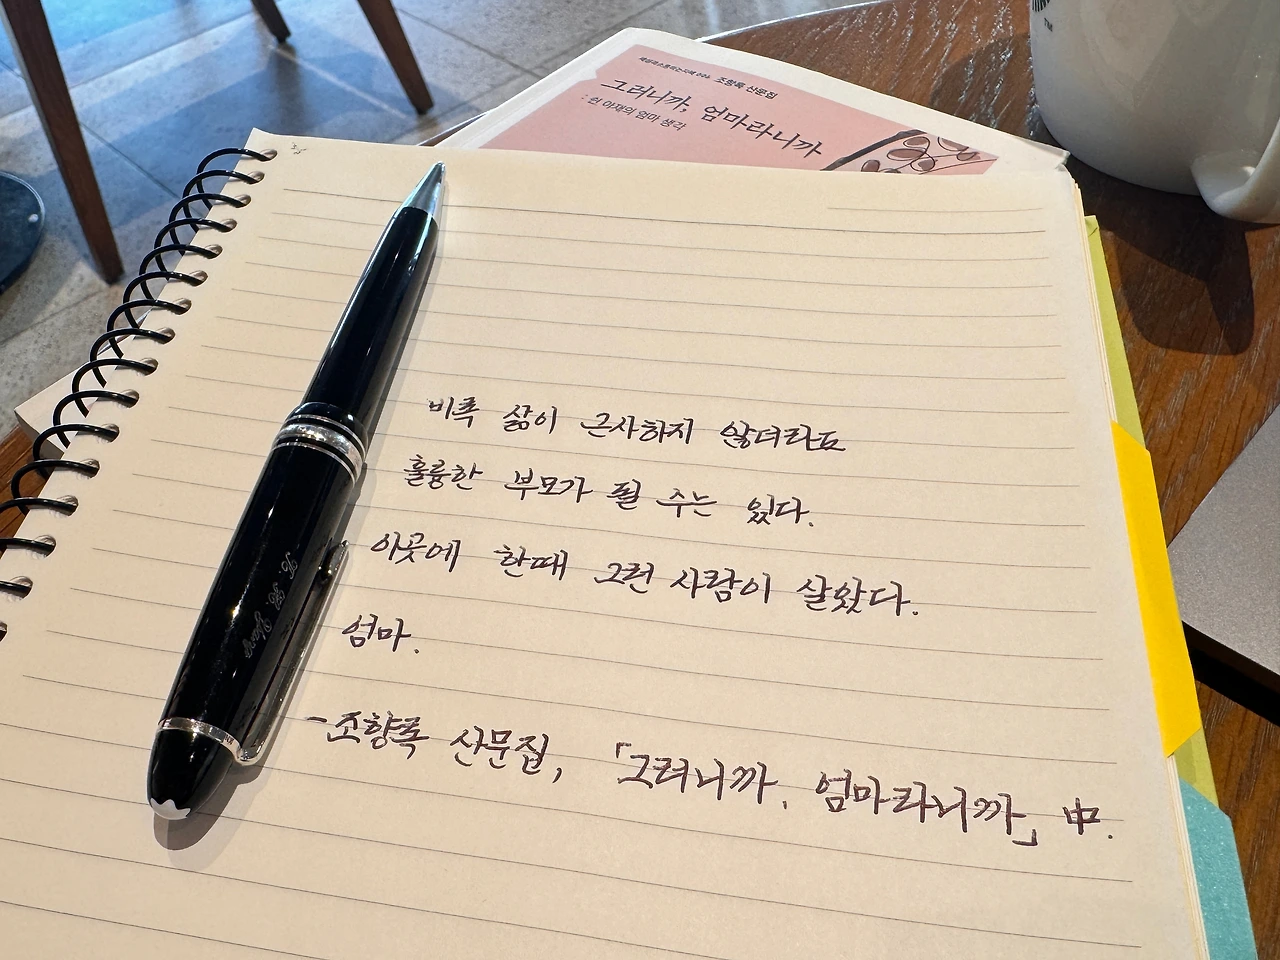 조향록 산문집
그러니까, 엄마라니까
: 쉰 아재의 엄마 생각
TM
비록 삶이 근사하지 않더라도
훌륭한 부모가 될 수는 있다.
이곳에 한때 그런 사람이 살았다.
엄마.
-조향록 산문집, 「그러니까, 엄마라니까」 中.